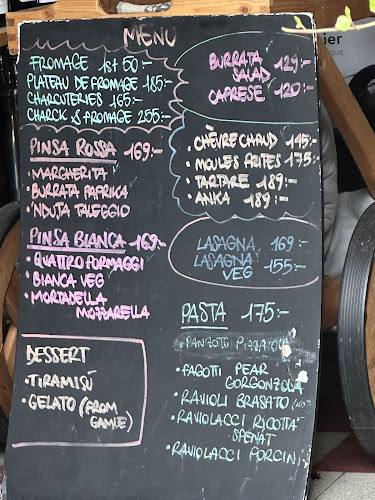 MENU
FROMAGE 1st 50:-
PLATEAU DE FROMAGE 185:-
CHARCUTERIES 165:-
CHARCK & FROMAGE 255:-
BURRATA 129:-
SALAD
CAPRESE 120:-
PINSA ROSSA 169:-
• MARGHERITA
• BURRATA PAPRIKA
• NDUJA TALEGGIO
PINSA BIANCA 169:-
• QUATTRO FORMAGGI
• BIANCA VEG
• MORTADELLA
MOZZARELLA
• CHÈVRE CHAUD 145:-
• MOULES FRITES 175:-
• TARTARE 189:-
• ANKA 189:-
LASAGNA 169:-
LASAGNA
VEG 155:-
DESSERT
• TIRAMISÙ
• GELATO (FROM
GAMLE)
PASTA 175:-
• FAGOTTI PEAR
GORGONZOLA
• RAVIOLI BRASATO
• RAVIOLACCI RICOTTA
SPENAT
• RAVIOLACCI PORCINI
ier